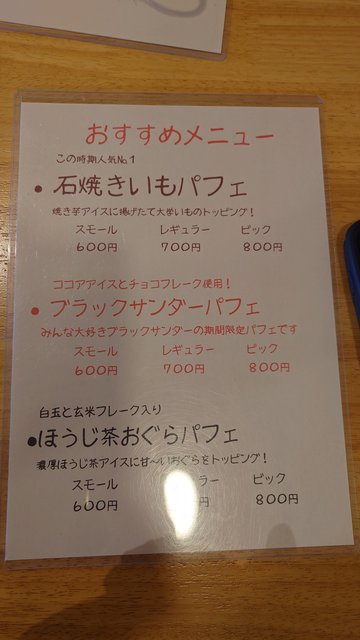 おすすめメニュー
この時期人気No.1
• 石焼きいもパフェ
焼き芋アイスに揚げたて大学いものトッピング!
スモール レギュラー ビック
600円 700円 800円
ココアアイスとチョコフレーク使用!
• ブラックサンダーパフェ
みんな大好きブラックサンダーの期間限定パフェです
スモール レギュラー ビック
600円 700円 800円
白玉と玄米フレーク入り
•ほうじ茶おぐらパフェ
濃厚ほうじ茶アイスに甘〜いおぐらをトッピング!
スモール ラー ビック
600円 円 800円